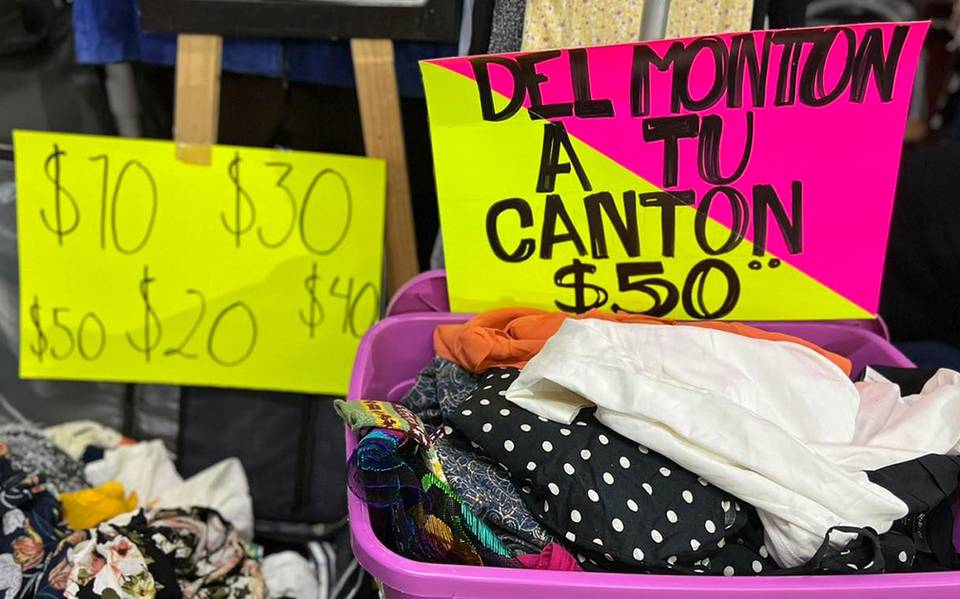 $10 $30
$50 $20 $40
DEL MONTON
A TU
CANTON..
$50